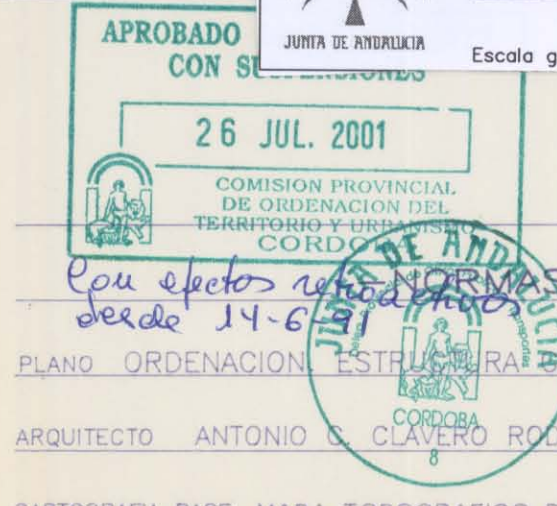 JUNTA DE ANDALUCIA
Escala g
APROBADO
CON SUSPENSIONES
26 JUL. 2001
COMISION PROVINCIAL
DE ORDENACION DEL
TERRITORIO Y URBANISMO
CORDOBA
Con efectos retroactivos
desde 14-6-91
NORMAS
JUNTA DE ANDALUCIA
CORDOBA
8
PLANO ORDENACION. ESTRUCTURA
ARQUITECTO ANTONIO C. CLAVERO ROD